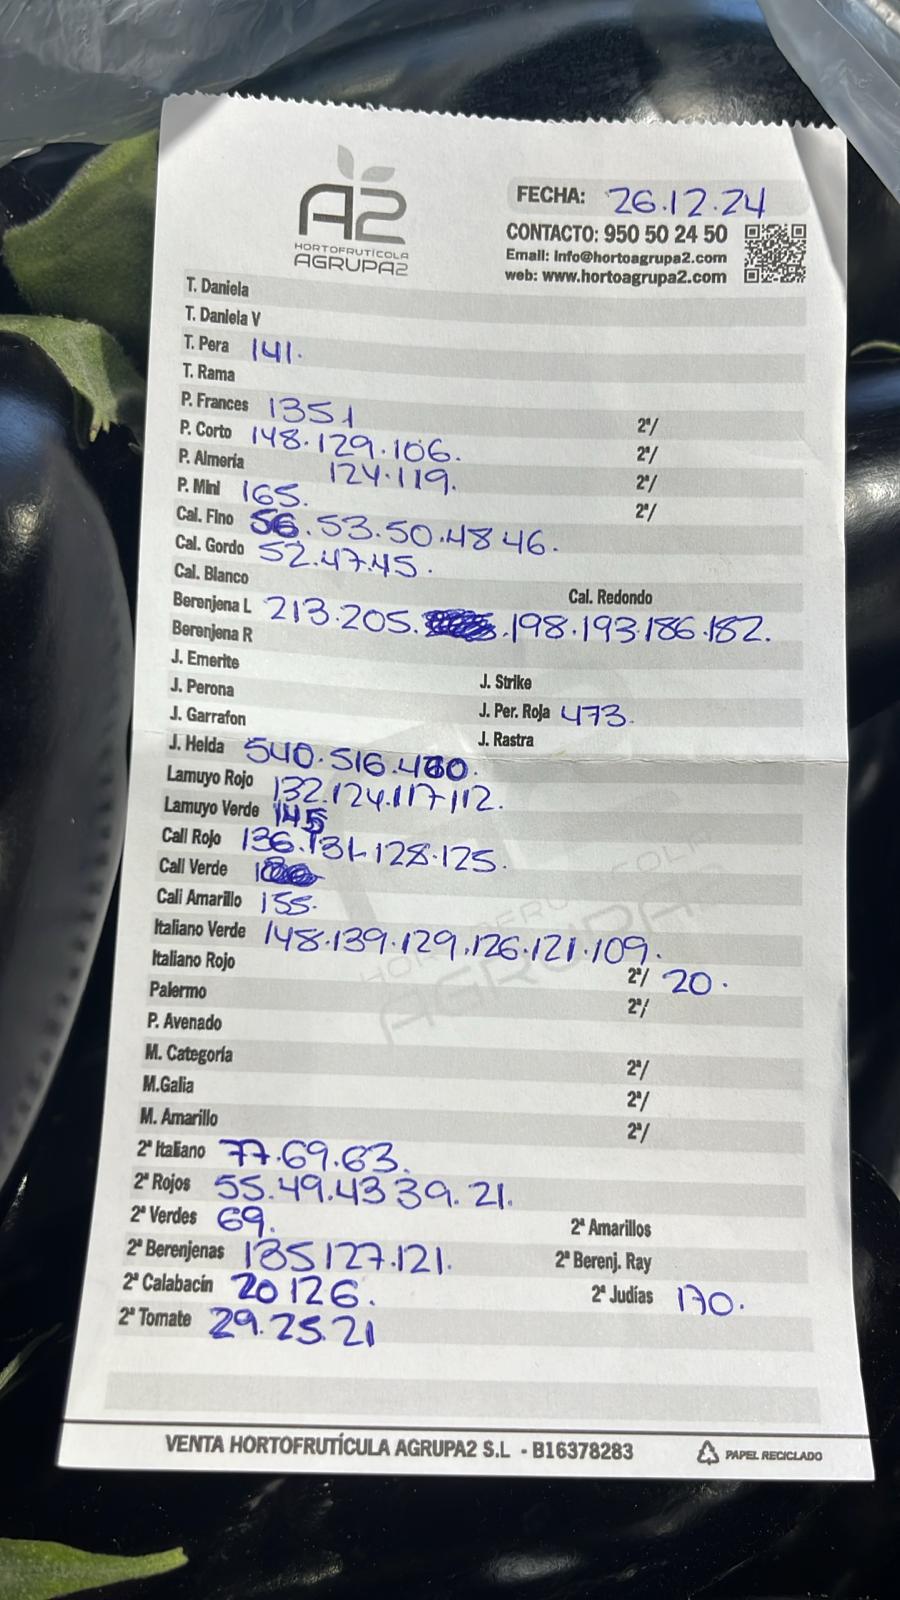 A2
HORTOFRUTÍCOLA
AGRUPA2
FECHA: 26.12.24
CONTACTO: 950 50 24 50
Email: info@hortoagrupa2.com
web: www.hortoagrupa2.com
T. Daniela
T. Daniela V
T. Pera 141.
T. Rama
P. Frances 135.1 2ª/
P. Corto 148.129.106. 2ª/
P. Almería 124.119. 2ª/
P. Mini 165. 2ª/
Cal. Fino 56.53.50.48 46.
Cal. Gordo 52.47.45.
Cal. Blanco Cal. Redondo
Berenjena L 213.205. .198.193.186.182.
Berenjena R
J. Emerite J. Strike
J. Perona J. Per. Roja 473.
J. Garrafon J. Rastra
J. Helda 540.516.480.
Lamuyo Rojo 132.124.117.112.
Lamuyo Verde 145
Cali Rojo 136.131.128.125.
Cali Verde
Cali Amarillo 155.
Italiano Verde 148.139.129.126.121.109.
Italiano Rojo 2ª/ 20.
Palermo 2ª/
P. Avenado
M. Categoría 2ª/
M.Galia 2ª/
M. Amarillo 2ª/
2ª Italiano 77.69.63.
2ª Rojos 55.49.43 39.21.
2ª Verdes 69. 2ª Amarillos
2ª Berenjenas 135 127.121. 2ª Berenj. Ray
2ª Calabacín 20 126. 2ª Judías 170.
2ª Tomate 29.25.21
HORTOFRUTÍCOLA
AGRUPA
VENTA HORTOFRUTÍCULA AGRUPA2 S.L - B16378283
PAPEL RECICLADO